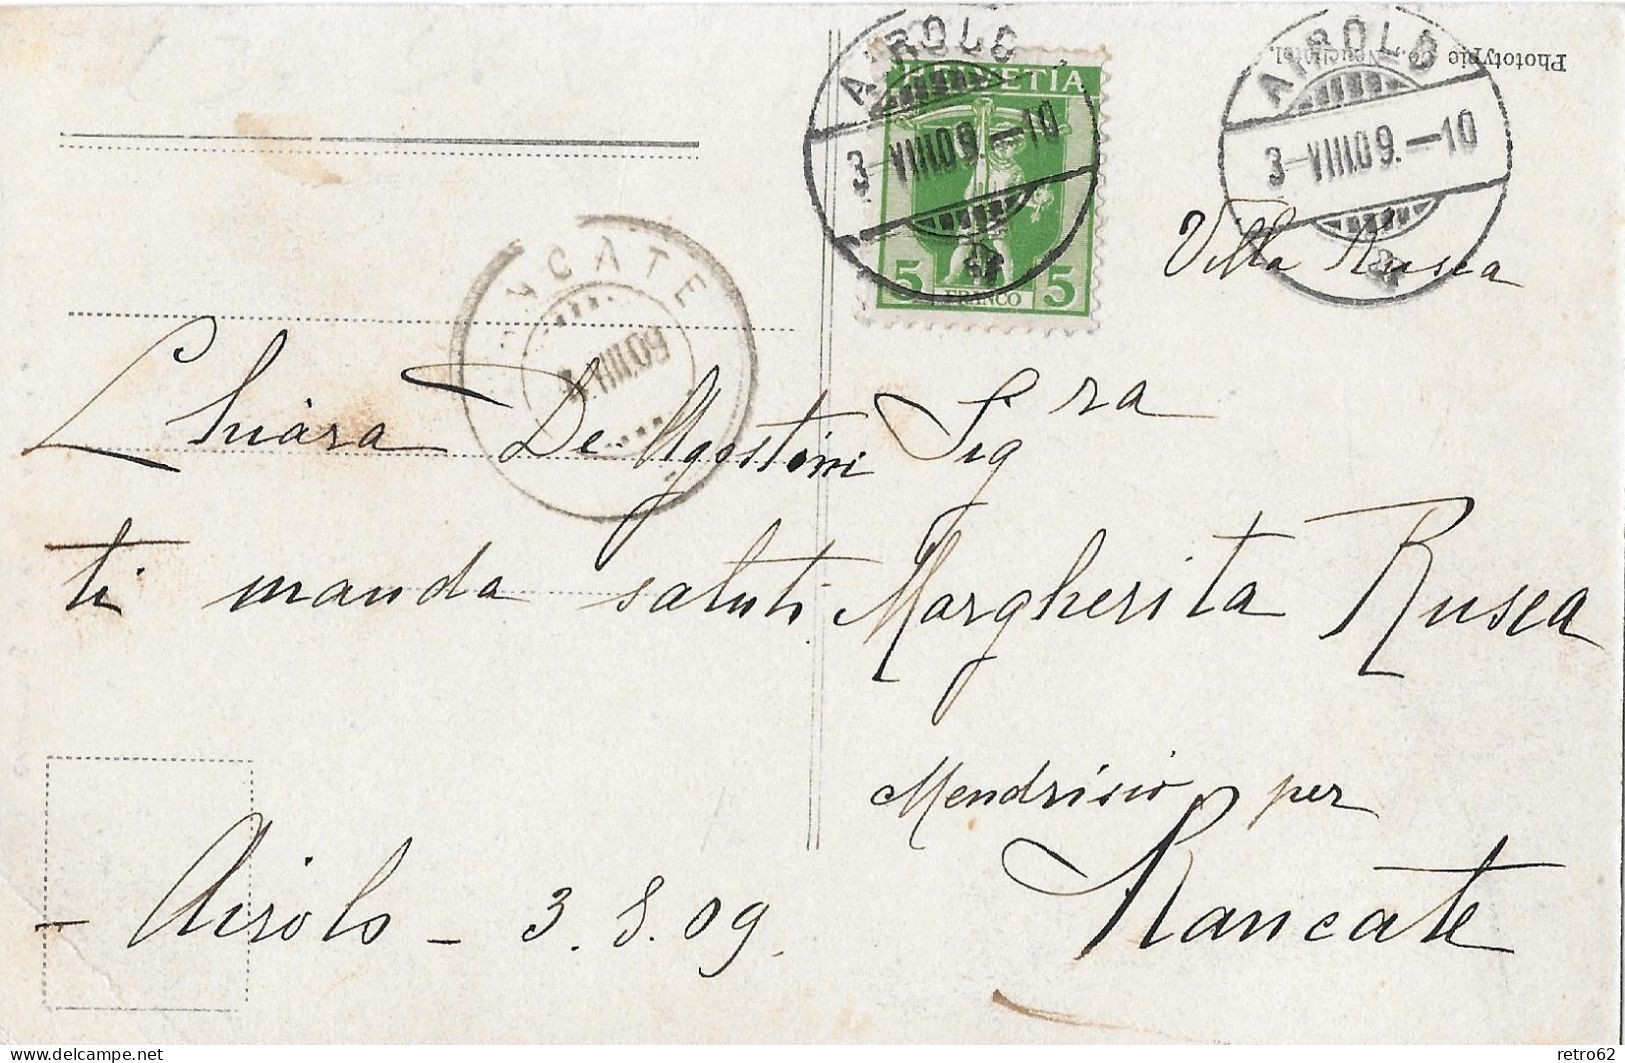 Phototypie Co., Neuchâtel.
AIROLO
3-VIII.09.-10
HELVETIA
5 FRANCO 5
AIROLO
3-VIII.09.-10
Villa Rusca
NCATE
VIII.09
Chiara De Agostini
ti manda saluti
Airolo - 3.8.09.
Sig ra
Margherita Rusca
Mendrisio per
Rancate
delcampe.net
retro62